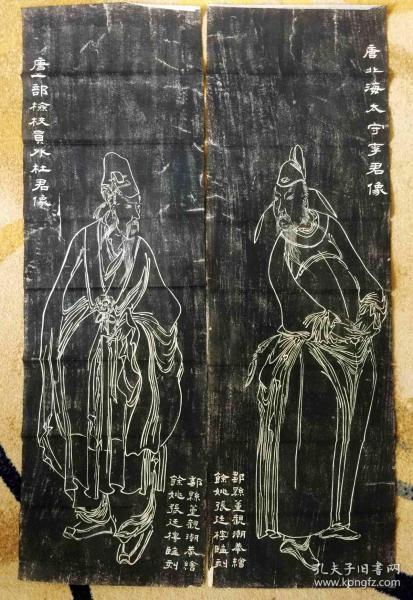 唐北海太守李君像
鄞縣黃觀潮摹繪
餘姚張廷樟臨刻
唐工部檢校員外杜君像
鄞縣黃觀潮摹繪
餘姚張廷樟臨刻
孔夫子旧书网
www.kongfz.com